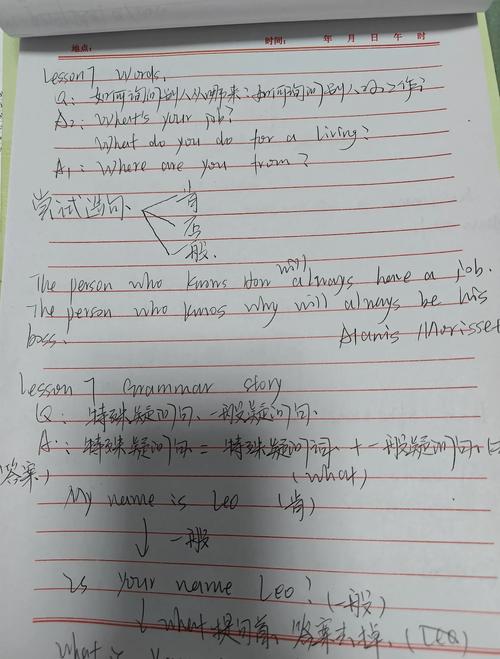 地点: 时间: 年 月 日 午 时
Lesson 7 Words.
Q: 如何询问别人从哪来? 如何询问别人的工作?
A2: What's your job?
What do you do for a living?
A1: Where are you from?
尝试造句. 肯
否
一般.
The person who knows How will always have a job.
The person who knows why will always be his
boss. Alanis Morisset
Lesson 7 Grammar story
Q: 特殊疑问句、一般疑问句.
A: 特殊疑问句 = 特殊疑问词 + 一般疑问句
答案) (what)
My name is Leo (肯)
↓ 一般
Is your name Leo? (一般)
↓ what提句首, 答案去掉. (Leo)
What is